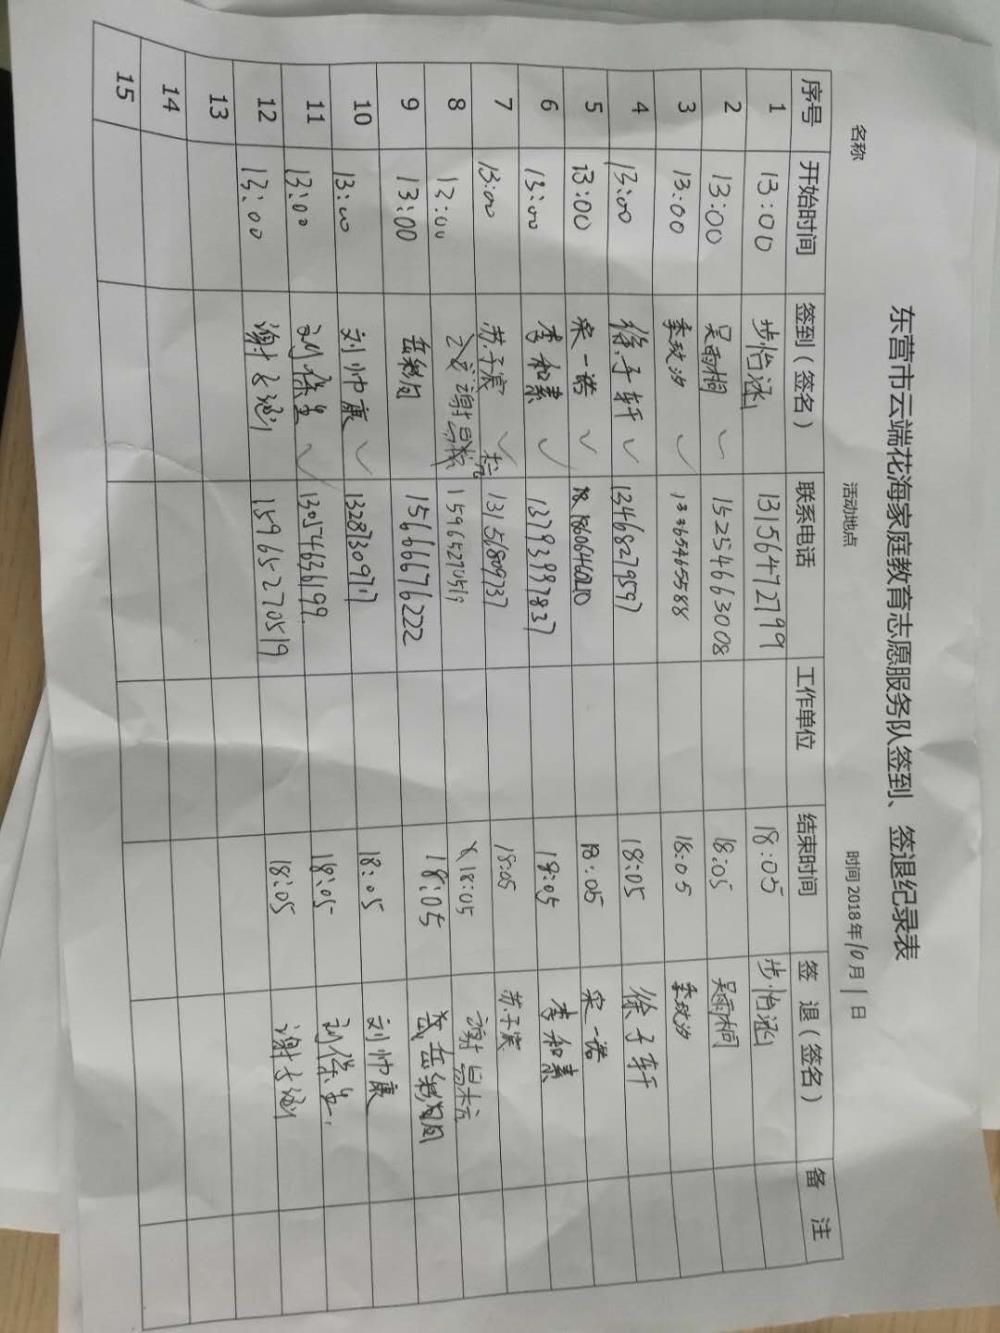 东营市云端花海家庭教育志愿服务队签到、签退纪录表
名称 活动地点 时间 2018年10月1日
序号 开始时间 签到(签名) 联系电话 工作单位 结束时间 签 退(签名) 备 注
1 13:00 步怡涵 13156472799 18:05 步怡涵
2 13:00 吴雨桐 15254663008 18:05 吴雨桐
3 13:00 季玟汐 13365465588 18:05 季玟汐
4 13:00 徐子轩 13468279597 18:05 徐子轩
5 13:00 宋一诺 18:05 宋一诺
6 13:00 李和素 13793997837 18:05 李和素
7 13:00 苏子宸 13151809737 18:05 苏子宸
8 13:00 谢 15965270519 18:05 谢
9 13:00 岳 15666676222 18:05 岳
10 13:00 刘帅康 13287309717 18:05 刘帅康
11 13:00 刘 13054636199 18:05 刘
12 13:00 谢子涵 15965270519 18:05 谢子涵
13
14
15